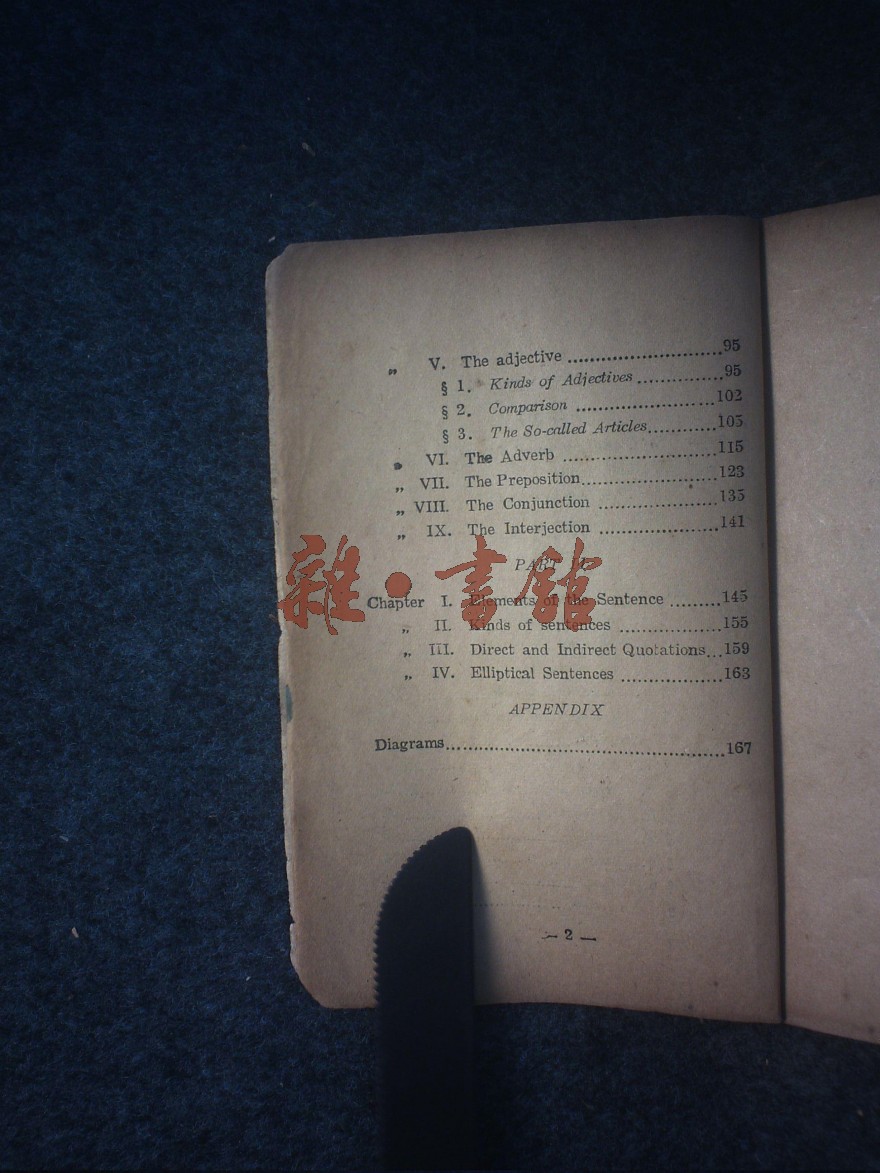 „ V. The adjective ........................... 95
§ 1. Kinds of Adjectives ............... 95
§ 2. Comparison ........................ 102
§ 3. The So-called Articles............ 105
„ VI. The Adverb ........................... 115
„ VII. The Preposition........................ 123
„ VIII. The Conjunction ..................... 135
„ IX. The Interjection ..................... 141
PART II
Chapter I. Elements of the Sentence ......... 145
„ II. Kinds of sentences .................. 155
„ III. Direct and Indirect Quotations... 159
„ IV. Elliptical Sentences .................. 163
雜·書館
APPENDIX
Diagrams................................................... 167
— 2 —